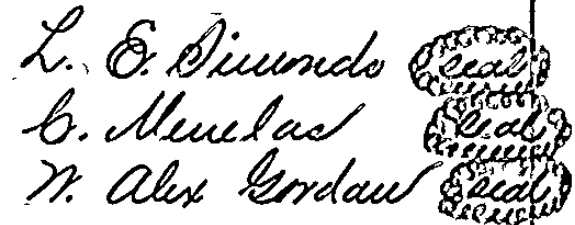 L. E. Dimondo seal
C. Menelas seal
W. Alex Gordan seal